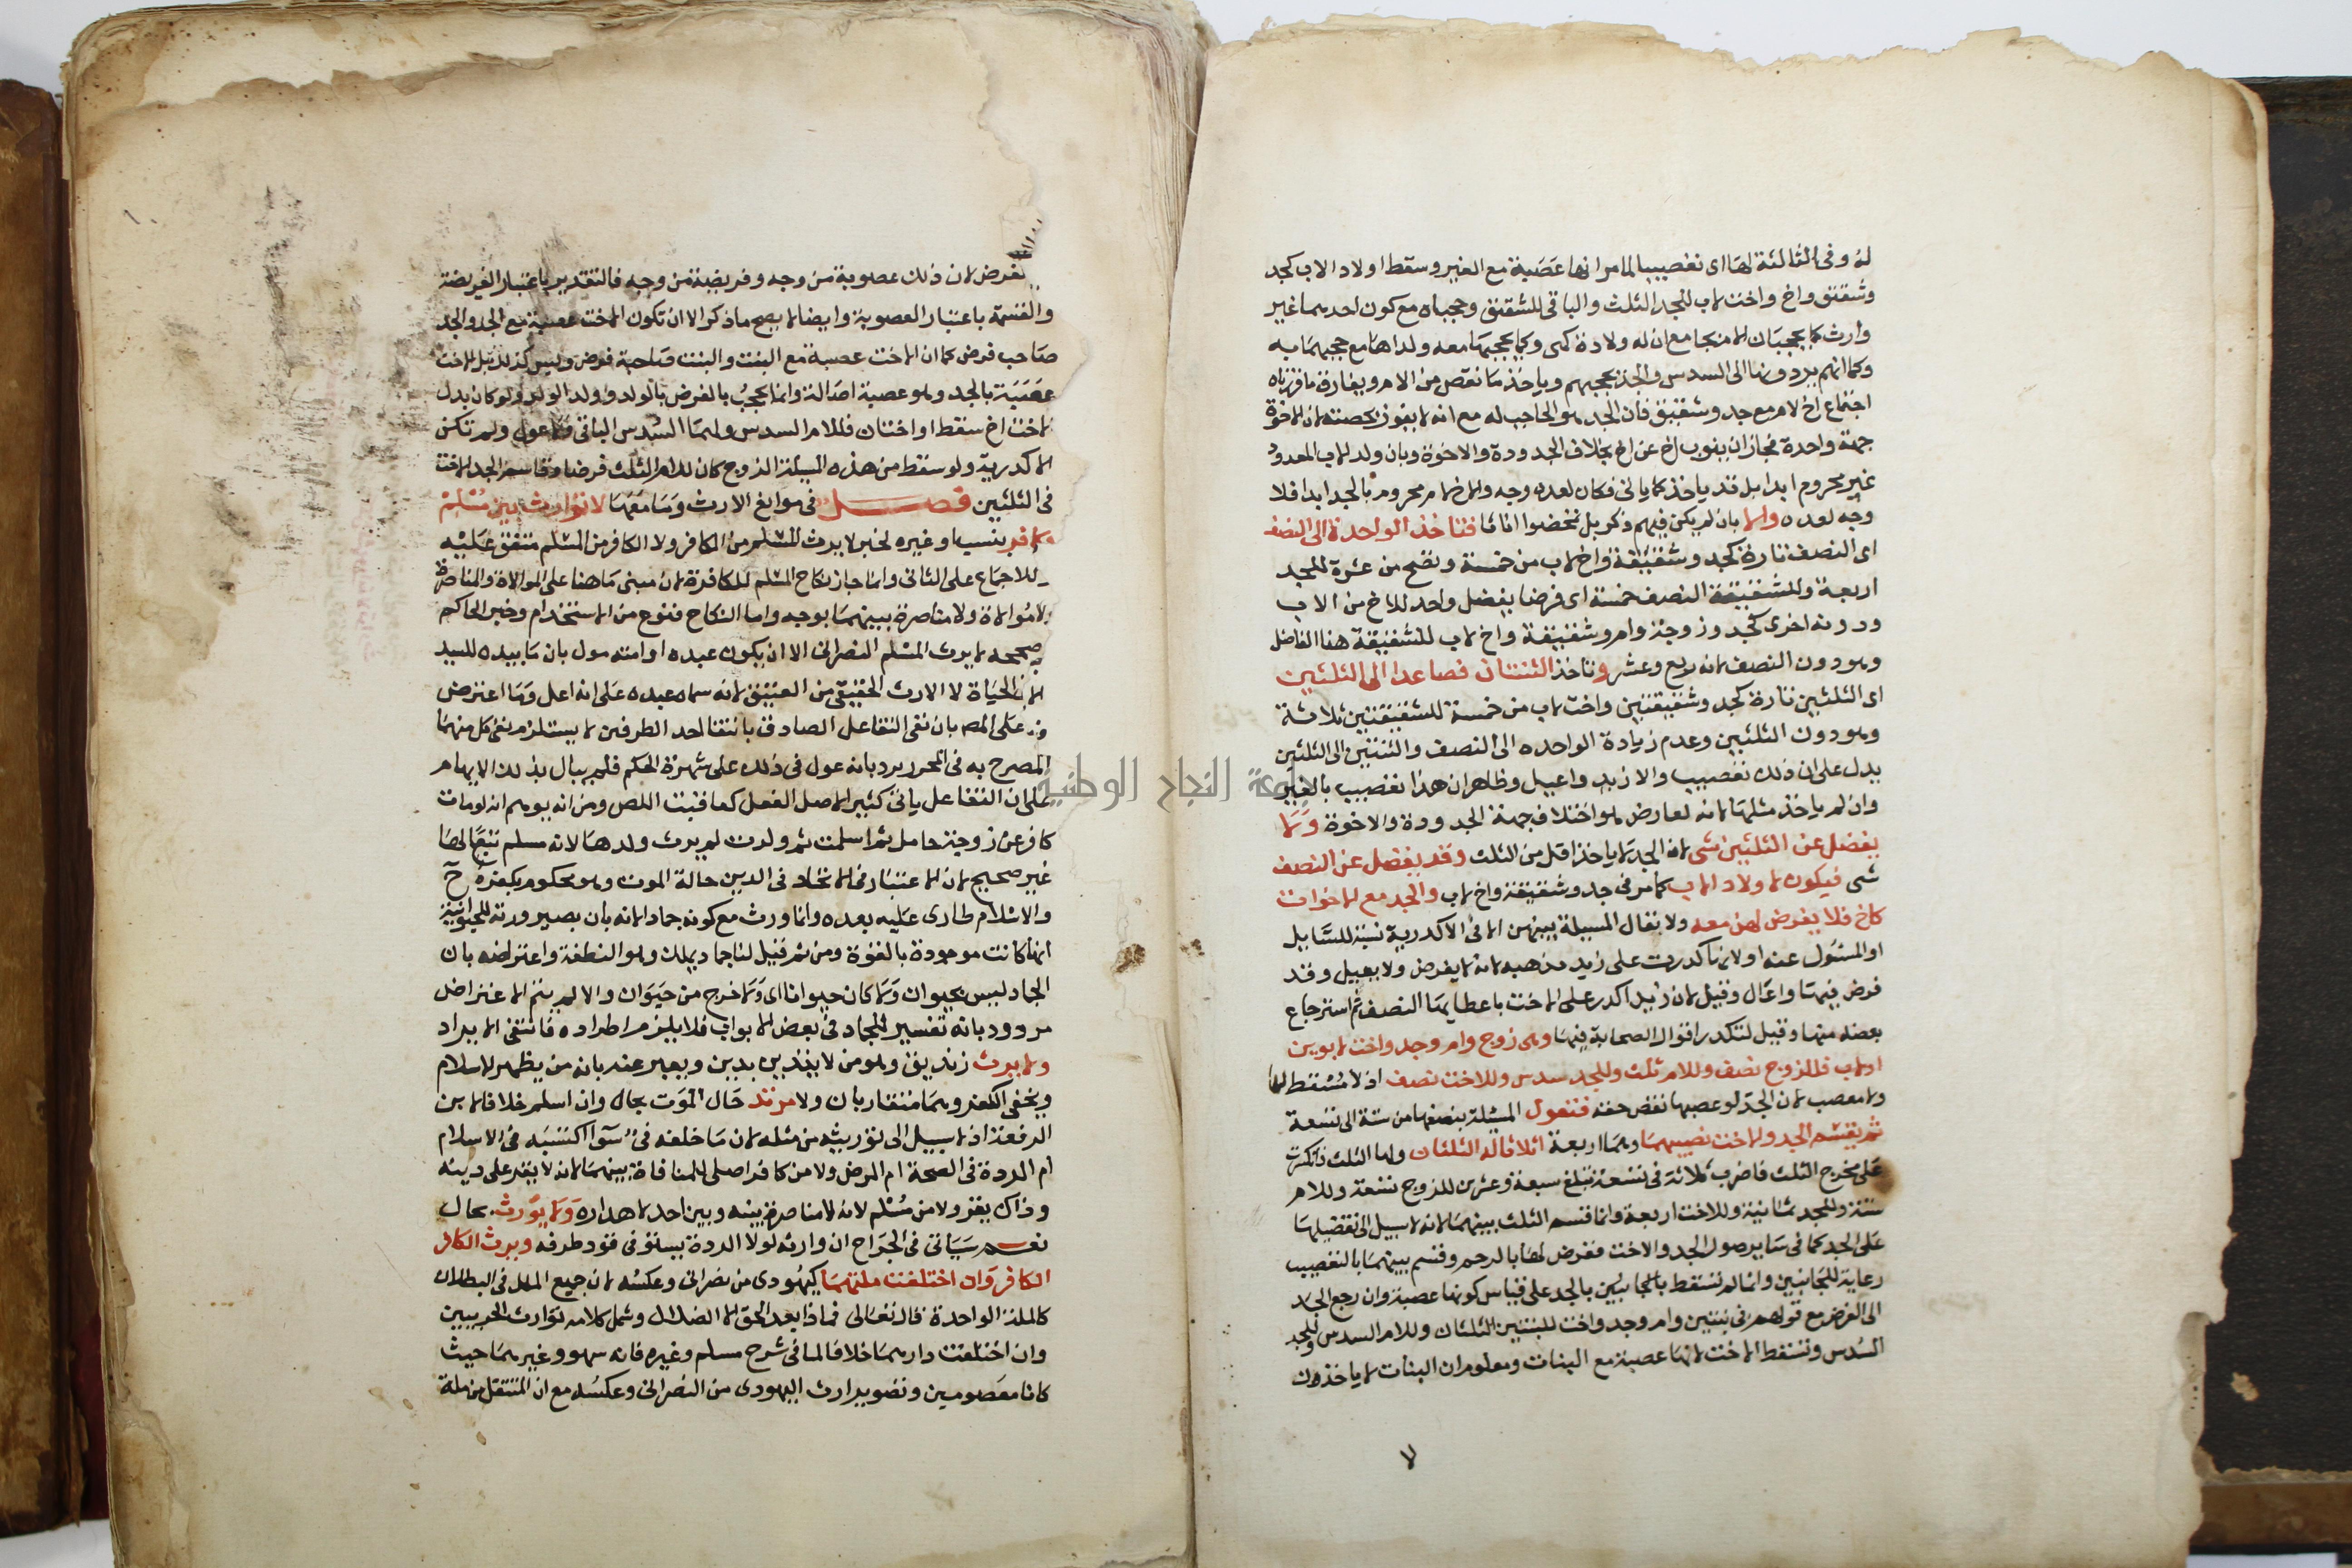 له وفى الثالثة لها اى تعصيبا لما مر انها عصبة مع الغير وسقط اولاد الاب كجد
وشقيق واخ واخت لاب للجد الثلث والباقى للشقيق وحجباه مع كون احدهما غير
وارث كما يحجبان الام معه وولداها مع حجبهما به
وكما انهم يردونها الى السدس والجد يحجبهم وياخذ ما نقص من الام ويفارق ما قررناه
اجتماع اخ لام مع جد وشقيق فان الجد هو الحاجب له مع انه لا يفوز بحصته لان الاخوة
جهة واحدة فجاز ان ينوب اخ عن اخ بخلاف الجدودة والاخوة وبان ولد الاب المعدود
غير محروم ابدا بل قد ياخذ كما ياتى فكان لعده وجه والاخ لام محروم بالجد ابدا فلا
وجه لعده والا بان لم يكن فيهم ذكر بل تمحضوا اناثا فتاخذ الواحدة الى النصف
اى النصف تارة كجد وشقيقة واخ لاب من خمسة وتصح من عشرة للجد
اربعة وللشقيقة النصف خمسة اى فرضا يفضل واحد للاخ من الاب
ودونه اخرى كجد وزوجة وام وشقيقة واخ لاب للشقيقة هنا الفاضل
وهو دون النصف لانه ربع وعشر وتاخذ الثنتان فصاعدا الى الثلثين
اى الثلثين تارة كجد وشقيقتين واخت لاب من خمسة للشقيقتين ثلاثة
وهو دون الثلثين وعدم زيادة الواحده الى النصف والثنتين الى الثلثين
يدل على ان ذلك تعصيب والا زيد واعيل وظاهر ان هذا تعصيب بالغير
وان لم ياخذ مثليها لانه لعارض هو اختلاف جهة الجدودة والاخوة ولا
يفضل عن الثلثين شى لان الجد لا ياخذ اقل من الثلث وقد يفضل عن النصف
شى فيكون لاولاد الاب كما مر فى جد وشقيقة واخ لاب والجد مع الاخوات
كاخ فلا يفرض لهن معه ولا تعال المسيلة بسببهن الا فى الاكدرية نسبة للسايل
او المسئول عنه او لانها كدرت على زيد مذهبه لانه لا يفرض ولا يعيل وقد
فرض فيها واعال وقيل لان زيد اكدر على الاخت باعطايها النصف ثم استرجاع
بعضه منها وقيل لتكدر اقوال الصحابة فيها وهى زوج وام وجد واخت لابوين
او لاب فللزوج نصف وللام ثلث وللجد سدس وللاخت نصف اذ لا مسقط لها
ولا معصب لان الجد لو عصبها نقص حقه فتعول المسيلة بنصفها من ستة الى تسعة
ثم يقتسم الجد والاخت نصيبهما وهما اربعة اثلاثا له الثلثان ولها الثلث فانكسرت
على مخرج الثلث فاضرب ثلاثة فى تسعة تبلغ سبعة وعشرين للزوج تسعة وللام
ستة وللجد ثمانية وللاخت اربعة وانما قسم الثلث بينهما لانه لا سبيل الى تفضيلها
على الجد كما فى ساير صور الجد والاخت ففرض لها بالرحم وقسم بينهما بالتعصيب
رعاية للجانبين وانما لم تسقط بالجد على قياس كونها عصبة وان رجع الجد
الى الفرض مع قولهم فى بنتين وام وجد واخت للبنتين الثلثان وللام السدس وللجد
السدس وتسقط الاخت لانها عصبة مع البنات ومعلوم ان البنات لا ياخذون
لا
الفرض لان ذلك عصوبة من وجه وفريضة من وجه فالتقدير باعتبار الفريضة
والقسمة باعتبار العصوبة وايضا لا يصح ما ذكر الا ان تكون الاخت عصبة مع الجد والجد
صاحب فرض كما ان الاخت عصبة مع البنت والبنت صاحبة فرض وليس كذلك بل الاخت
عصبة بالجد وهو عصبة اصالة وانما يحجب بالفرض بالولد وولد الولد ولو كان بدل
الاخت اخ سقط او اختان فللام السدس ولهما السدس الباقى ولا عول ولم تكن
اكدرية ولو سقط من هذه المسيلة الزوج كان للام الثلث فرضا وقاسم الجد الاخت
فى الثلثين فصل فى موانع الارث وما معها لا توارث بين مسلم
وكافر بنسب او غيره لخبر لا يرث المسلم من الكافر ولا الكافر من المسلم متفق عليه
وللاجماع على الثانى وانما جاز نكاح المسلم للكافرة لان مبنى ما هنا على الموالاة والمناصرة
ولا موالاة ولا مناصرة بينهما بوجه واما النكاح فنوع من الاستخدام وخبر الحاكم
وصححه لا يرث المسلم النصرانى الا ان يكون عبده او امته مول بان ما بيده للسيد
كما فى الحياة لا الارث الحقيقى من العتيق لانه سماه عبده على انه اعل وما اعترض
به على المص بان نفى التفاعل الصادق بانتفا احد الطرفين لا يستلزم نفى كل منهما
المصرح به فى المحرر يرد بانه عول فى ذلك على شهرة الحكم فلم يبال بذلك الايهام
على ان التفاعل ياتى كثيرا لاصل الفعل كعاقبت اللص ومن انه يوهم انه لو مات
كافر عن زوجة حامل ثم اسلمت ثم ولدت لم يرث ولدها لانه مسلم تبعا لها
غير صحيح لان الاعتبار فى الاتحاد فى الدين حالة الموت وهو محكوم بكفره ح
والاسلام طارى عليه بعده وانما ورث مع كونه جمادا لانه بان بصيرورته للحيوانية
انها كانت موجودة بالقوة ومن ثم قيل لنا جماد يملك وهو النطفة واعتراضه بان
الجماد ليس بحيوان ولا كان حيوانا اى ولا خرج من حيوان والا لم يتم الاعتراض
مردود بانه تفسير للجماد فى بعض الابواب فلا يلزم اطراده فانتفى الايراد
ولا يرث زنديق وهو من لا يتدين بدين ويعبر عنه بانه من يظهر الاسلام
ويخفى الكفر وهما متقاربان ولا مرتد حال الموت بحال وان اسلم خلافا لابن
الرفعة اذ لا سبيل الى توريثه من مثله لان ما خلفه فىء سوا اكتسبه فى الاسلام
ام الردة فى الصحة ام المرض ولا من كافر اصلى للمنافاة بينهما لانه لا يقر على دينه
وذاك يقر ولا من مسلم لانه لا مناصرة بينه وبين احد لاهداره ولا يورث بحال
نعم سياتى فى الجراح ان وارثه لولا الردة يستوفى قود طرفه ويرث الكافر
الكافر وان اختلفت ملتهما كيهودى من نصرانى وعكسه لان جميع الملل فى البطلان
كالملة الواحدة قال تعالى فماذا بعد الحق الا الضلال وشمل كلامه توارث الحربيين
وان اختلفت دارهما خلافا لما فى شرح مسلم وغيره فانه سهو وغيرهما حيث
كانا معصومين وتصوير ارث اليهودى من النصرانى وعكسه مع ان المنتقل من ملة
جامعة النجاح الوطنية